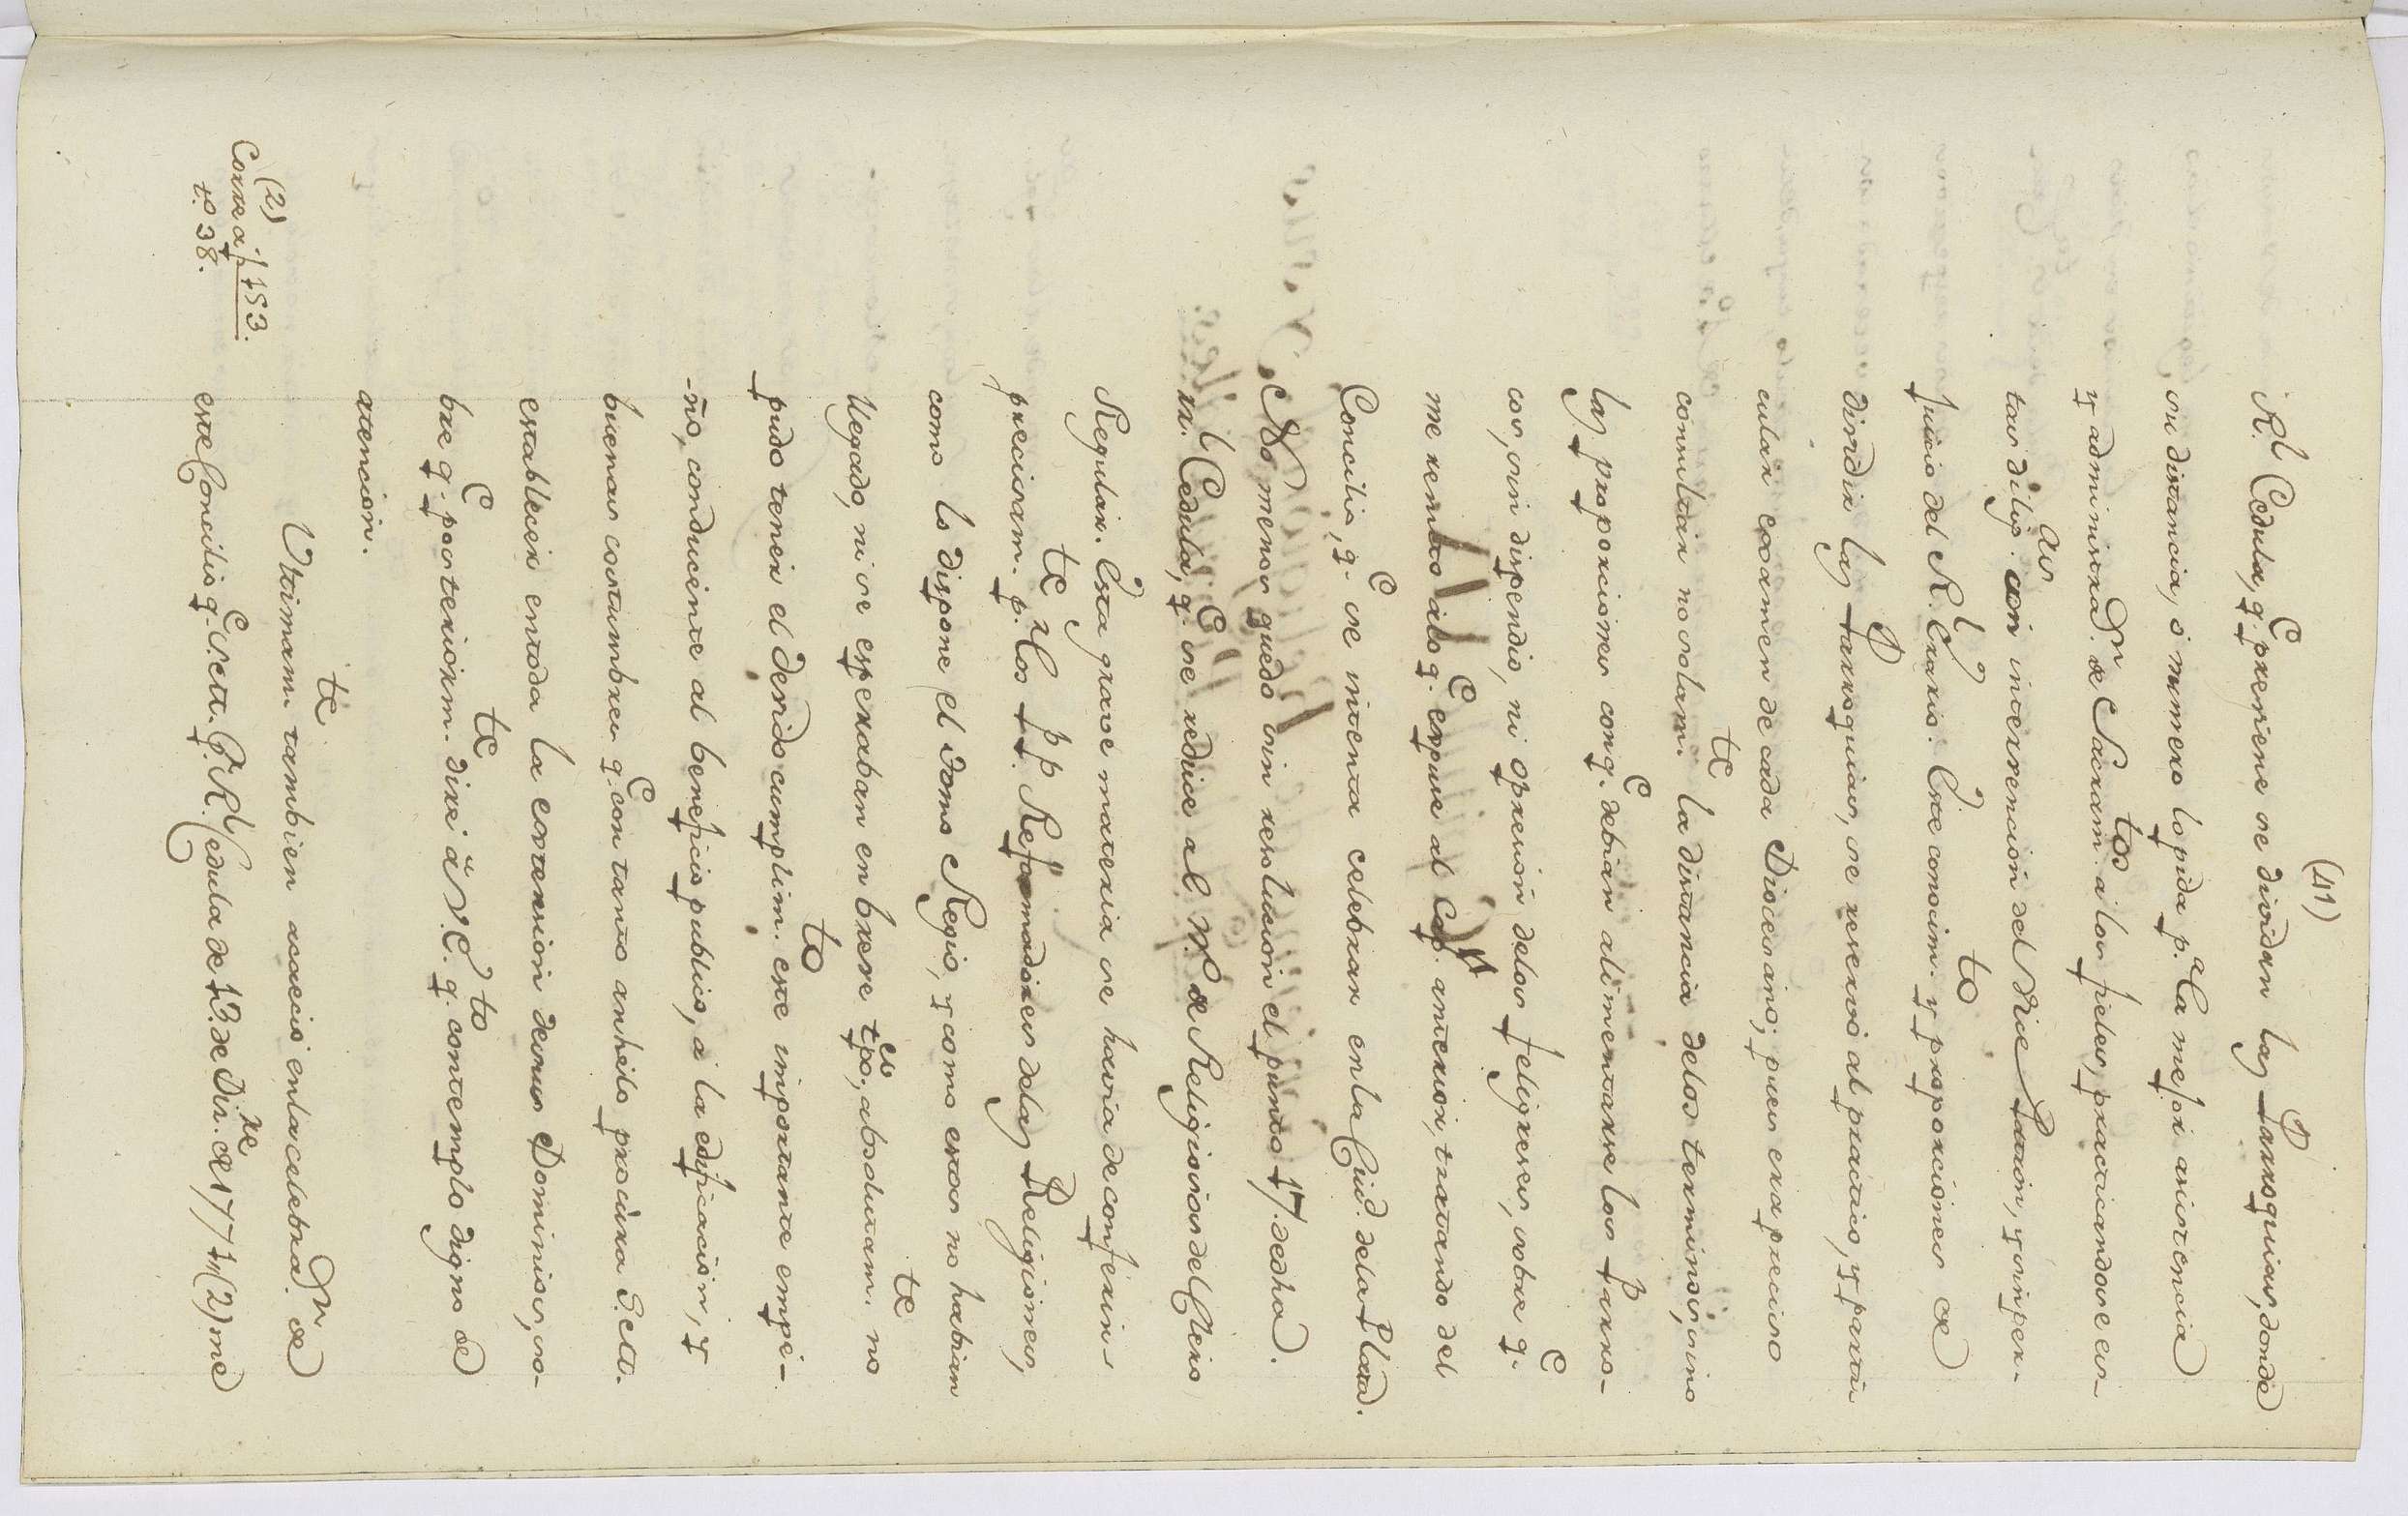 (41)
R.l Cedula, q.e previene se dividan las Parroquias, donde
su distancia, ó numero lo pida p.a la mejor asistencia
y administra.on de Sacram.tos a los fieles, practicandose es-
tas dilig.as con intervencion del Vice Patron, y sin per-
juicio del R.l Erario. Este conocim.to y proporciones de
dividir las Parroquias, se reservó al practico, y parti-
cular examen de cada Diocesano; pues era preciso
consultar no solam.te la distancia delos terminos, sino
las proporciones con q.e debian alimentarse los Parro-
cos, sin dispendio, ni opresion delos feligreses, sobre q.e
me remito alo q.e expuse al cap. anterior, tratando del
Concilio, q.e se intenta celebrar en la Ciud. dela Plata.
No menos quedo sin resolucion el punto 17. de dha
R.l Cedula, q.e se reduce al N.o de Religiosos del Clero
Regular. Esta grave materia se havia de conferir
precisam.te p.r los PP. Reformadores delas Religiones,
como lo dispone el tomo Regio, y como estos no habian
llegado, ni se esperaban en breve tpo, absolutam.te no
pudo tener el devido cumplim.to este importante empe-
-ño, conducente al beneficio publico, a la edificacion, y
buenas costumbres q.e con tanto anhelo procura S. M.
establecer en toda la extension de sus Dominios, so-
bre q.e posteriorm.te dixe á V. E. q.to contemplo digno de
atencion.
Ultimam.te tambien acaeció en la celebra.on de
este Concilio q.e S. M. P.r R.l Cedula de 13. de Diz.re de 1771 (2) me
(2)
Corre á f 153.
t.o 38.